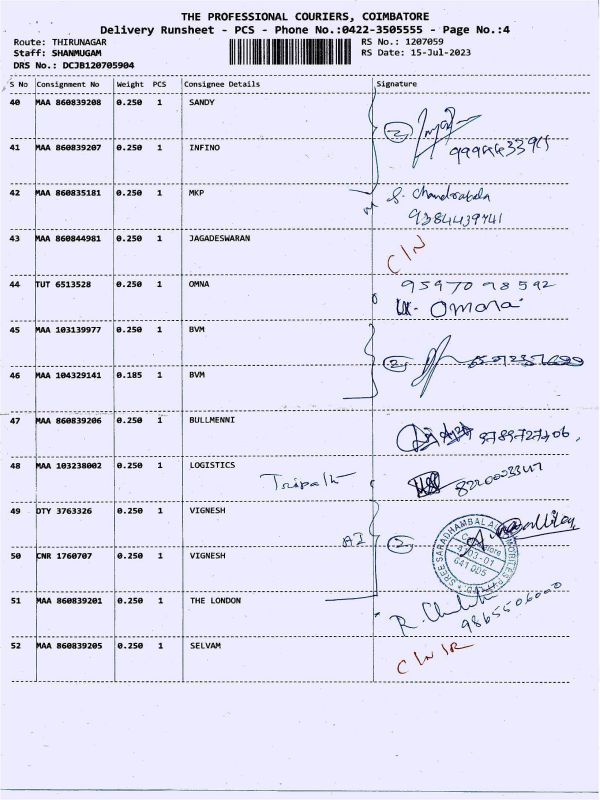 THE PROFESSIONAL COURIERS, COIMBATORE
Delivery Runsheet - PCS - Phone No.:0422-3505555 - Page No.:4
Route: THIRUNAGAR RS No.: 1207059
Staff: SHANMUGAM RS Date: 15-Jul-2023
DRS No.: DCJB120705904
S No Consignment No Weight PCS Consignee Details Signature
40 MAA 860839208 0.250 1 SANDY
2
41 MAA 860839207 0.250 1 INFINO
42 MAA 860835181 0.250 1 MKP S. Chandrakala
9384439741
43 MAA 860844981 0.250 1 JAGADESWARAN
C/N
44 TUT 6513528 0.250 1 OMNA 9597098592
Omana
45 MAA 103139977 0.250 1 BVM
2
46 MAA 104329141 0.185 1 BVM
47 MAA 860839206 0.250 1 BULLMENNI
9789727706
48 MAA 103238002 0.250 1 LOGISTICS
Tripath 8220003347
49 DTY 3763326 0.250 1 VIGNESH
AI 2 SREE SARADHAMBAL AUTOMOBILES
641 005
50 CNR 1760707 0.250 1 VIGNESH
51 MAA 860839201 0.250 1 THE LONDON
9865506000
52 MAA 860839205 0.250 1 SELVAM